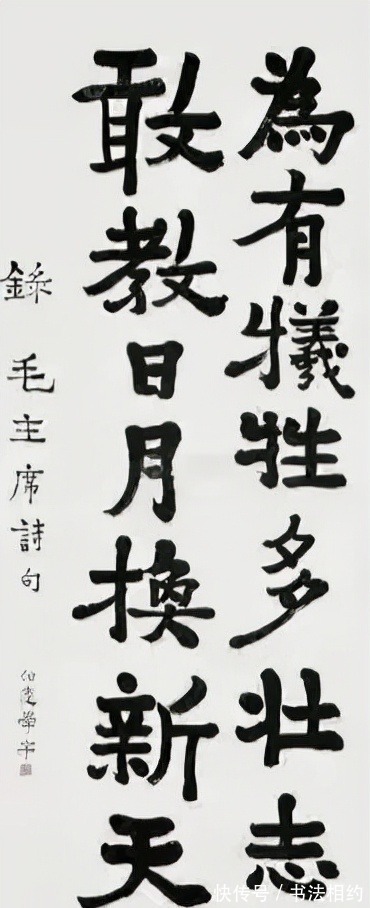 為有犧牲多壯志
敢教日月換新天
錄 毛主席詩句
快传号/书法相约